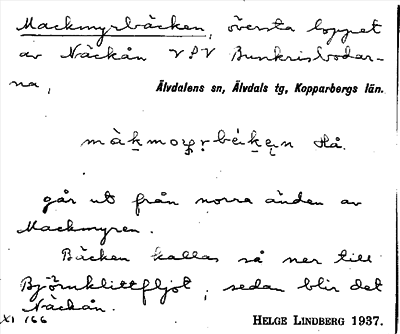 Mackmyrbäcken, översta loppet
av Näckån V.P.V Bunkrisbodar-
na, Älvdalens sn, Älvdals tg, Kopparbergs län.
Hå.
går ut från norra änden av
Mackmyren.
Bäcken kallas så ner till
Björnklittfljot, sedan blir det
Näckån.
XI 166 HELGE LINDBERG 1937.